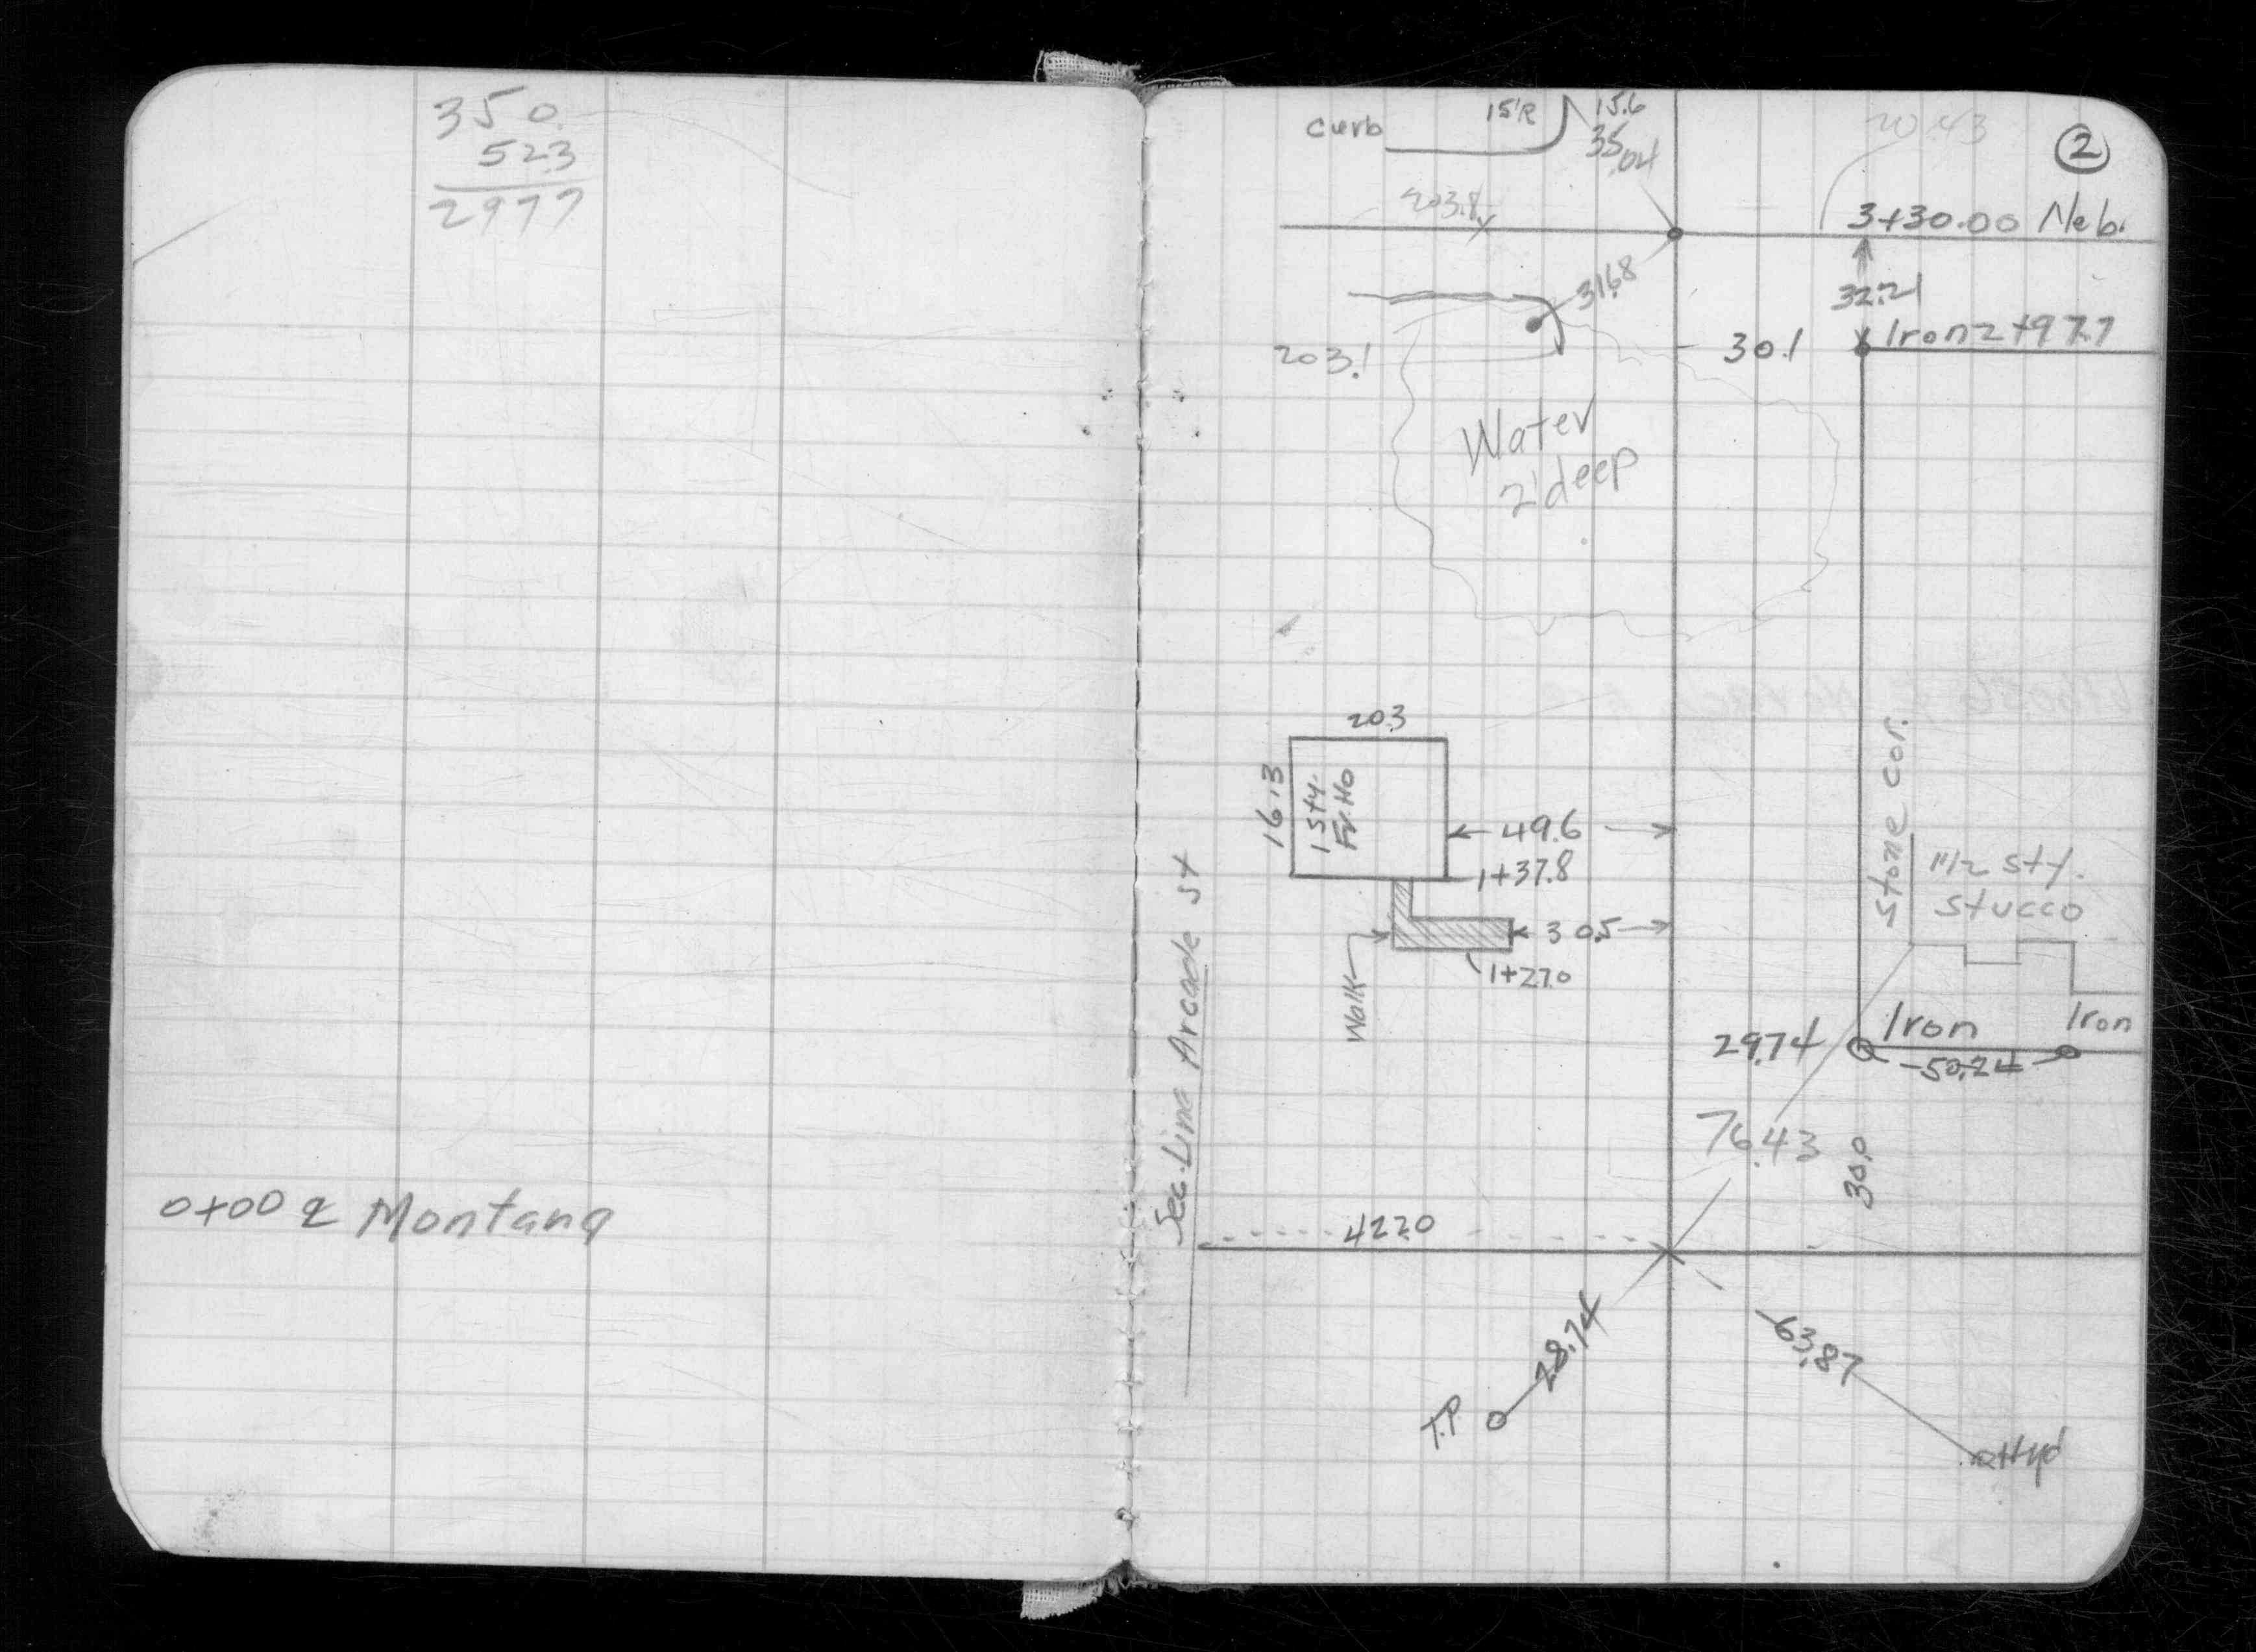 350.
52.3
297.7
0+00 ℄ Montana
2
curb
15'R
15.6
35.04
20.43
203.8
3+30.00 Neb.
31.68
32.21
203.1
30.1
Iron 2+97.7
Water
2' deep
20.3
16.3
1 Sty.
Fr. Ho
49.6
1+37.8
30.5
1+27.0
Walk
Sec. Line Arcade St
Stone Cor.
1 1/2 Sty.
Stucco
29.74
Iron
Iron
50.24
76.43
30.0
422.0
28.74
63.87
T.P.
Hyd